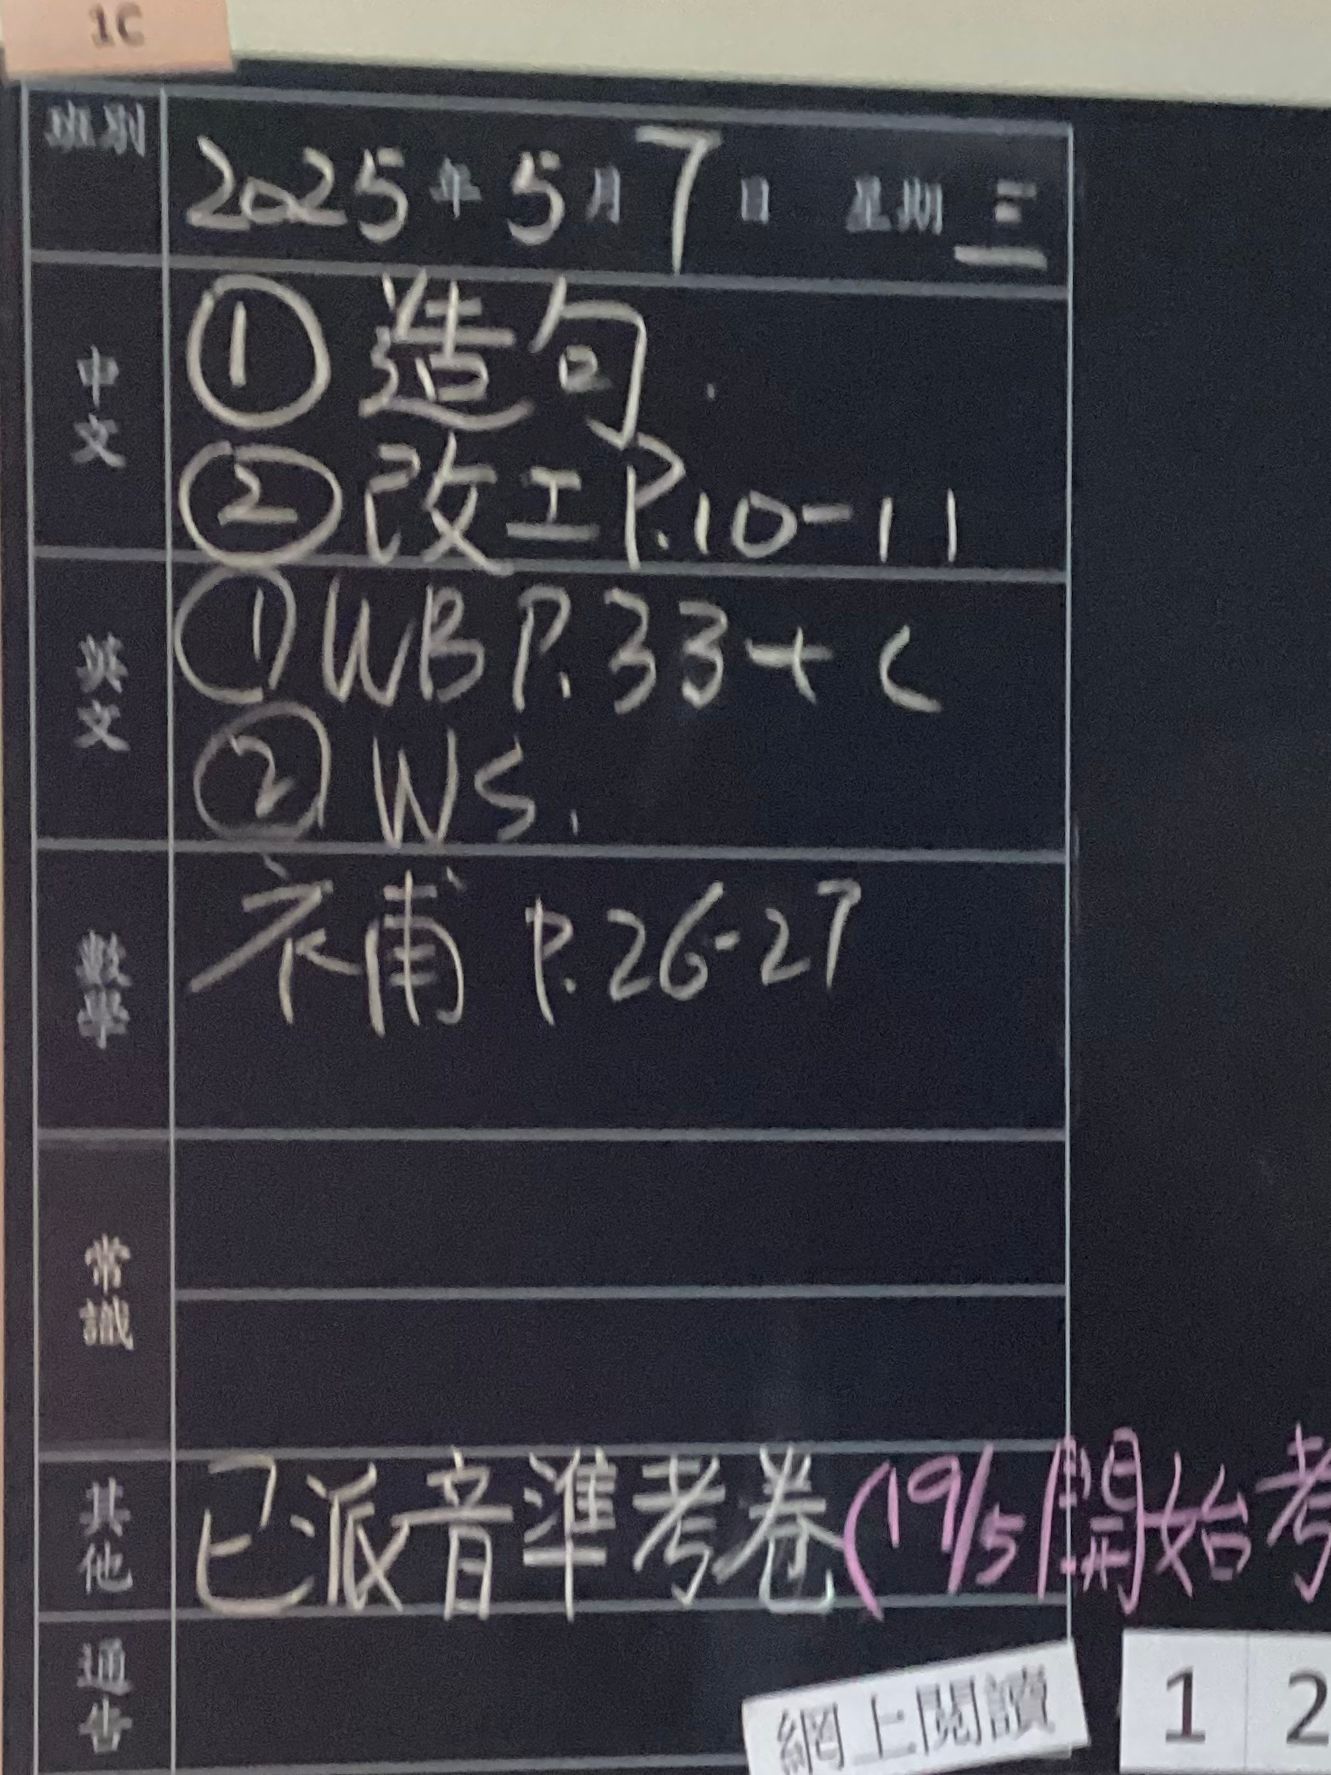 1C
班別
2025年5月7日 星期三
中文
① 造句.
② 改工P.10-11
英文
① WB P.33+C
② WS.
數學
補 P.26-27
常識
其他
已派音準考卷(19/5開始考
通告
網上閱讀
1 2